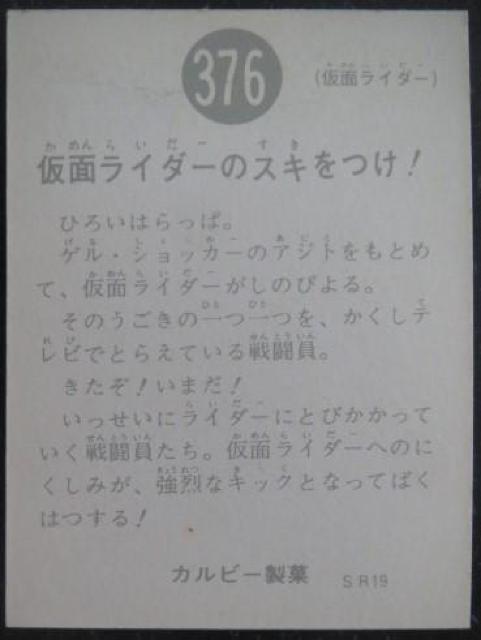 376
(仮面ライダー)
仮面ライダーのスキをつけ!
ひろいはらっぱ。
ゲル・ショッカーのアジトをもとめ
て、仮面ライダーがしのびよる。
そのうごきの一つ一つを、かくしテ
レビでとらえている戦闘員。
きたぞ!いまだ!
いっせいにライダーにとびかかって
いく戦闘員たち。仮面ライダーへのに
くしみが、強烈なキックとなってばく
はつする!
カルビー製菓
SR19